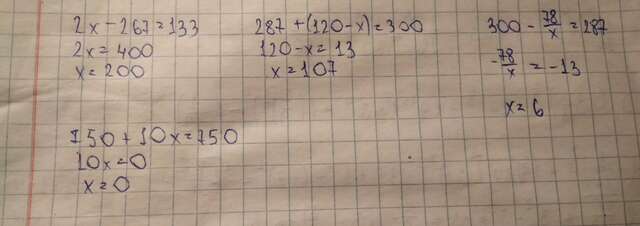 2x-267=133
2x=400
x=200
287+(120-x)=300
120-x=13
x=107
300-78/x=287
-78/x=-13
x=6
750+10x=750
10x=0
x=0